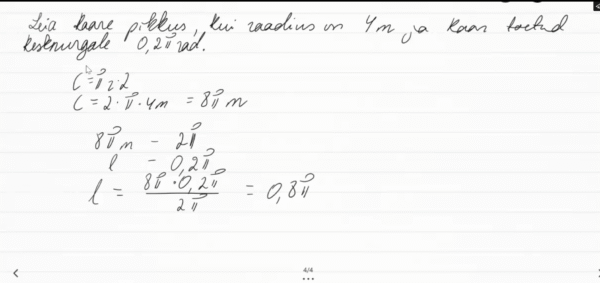 Leia kaare pikkus, kui raadius on 4m, ja kaar toetub
kesknurgale 0,2π rad.
C=πr·2
C=2·π·4m =8πm
8πm - 2π
l - 0,2π
l = 8π·0,2π / 2π = 0,8π
4/4